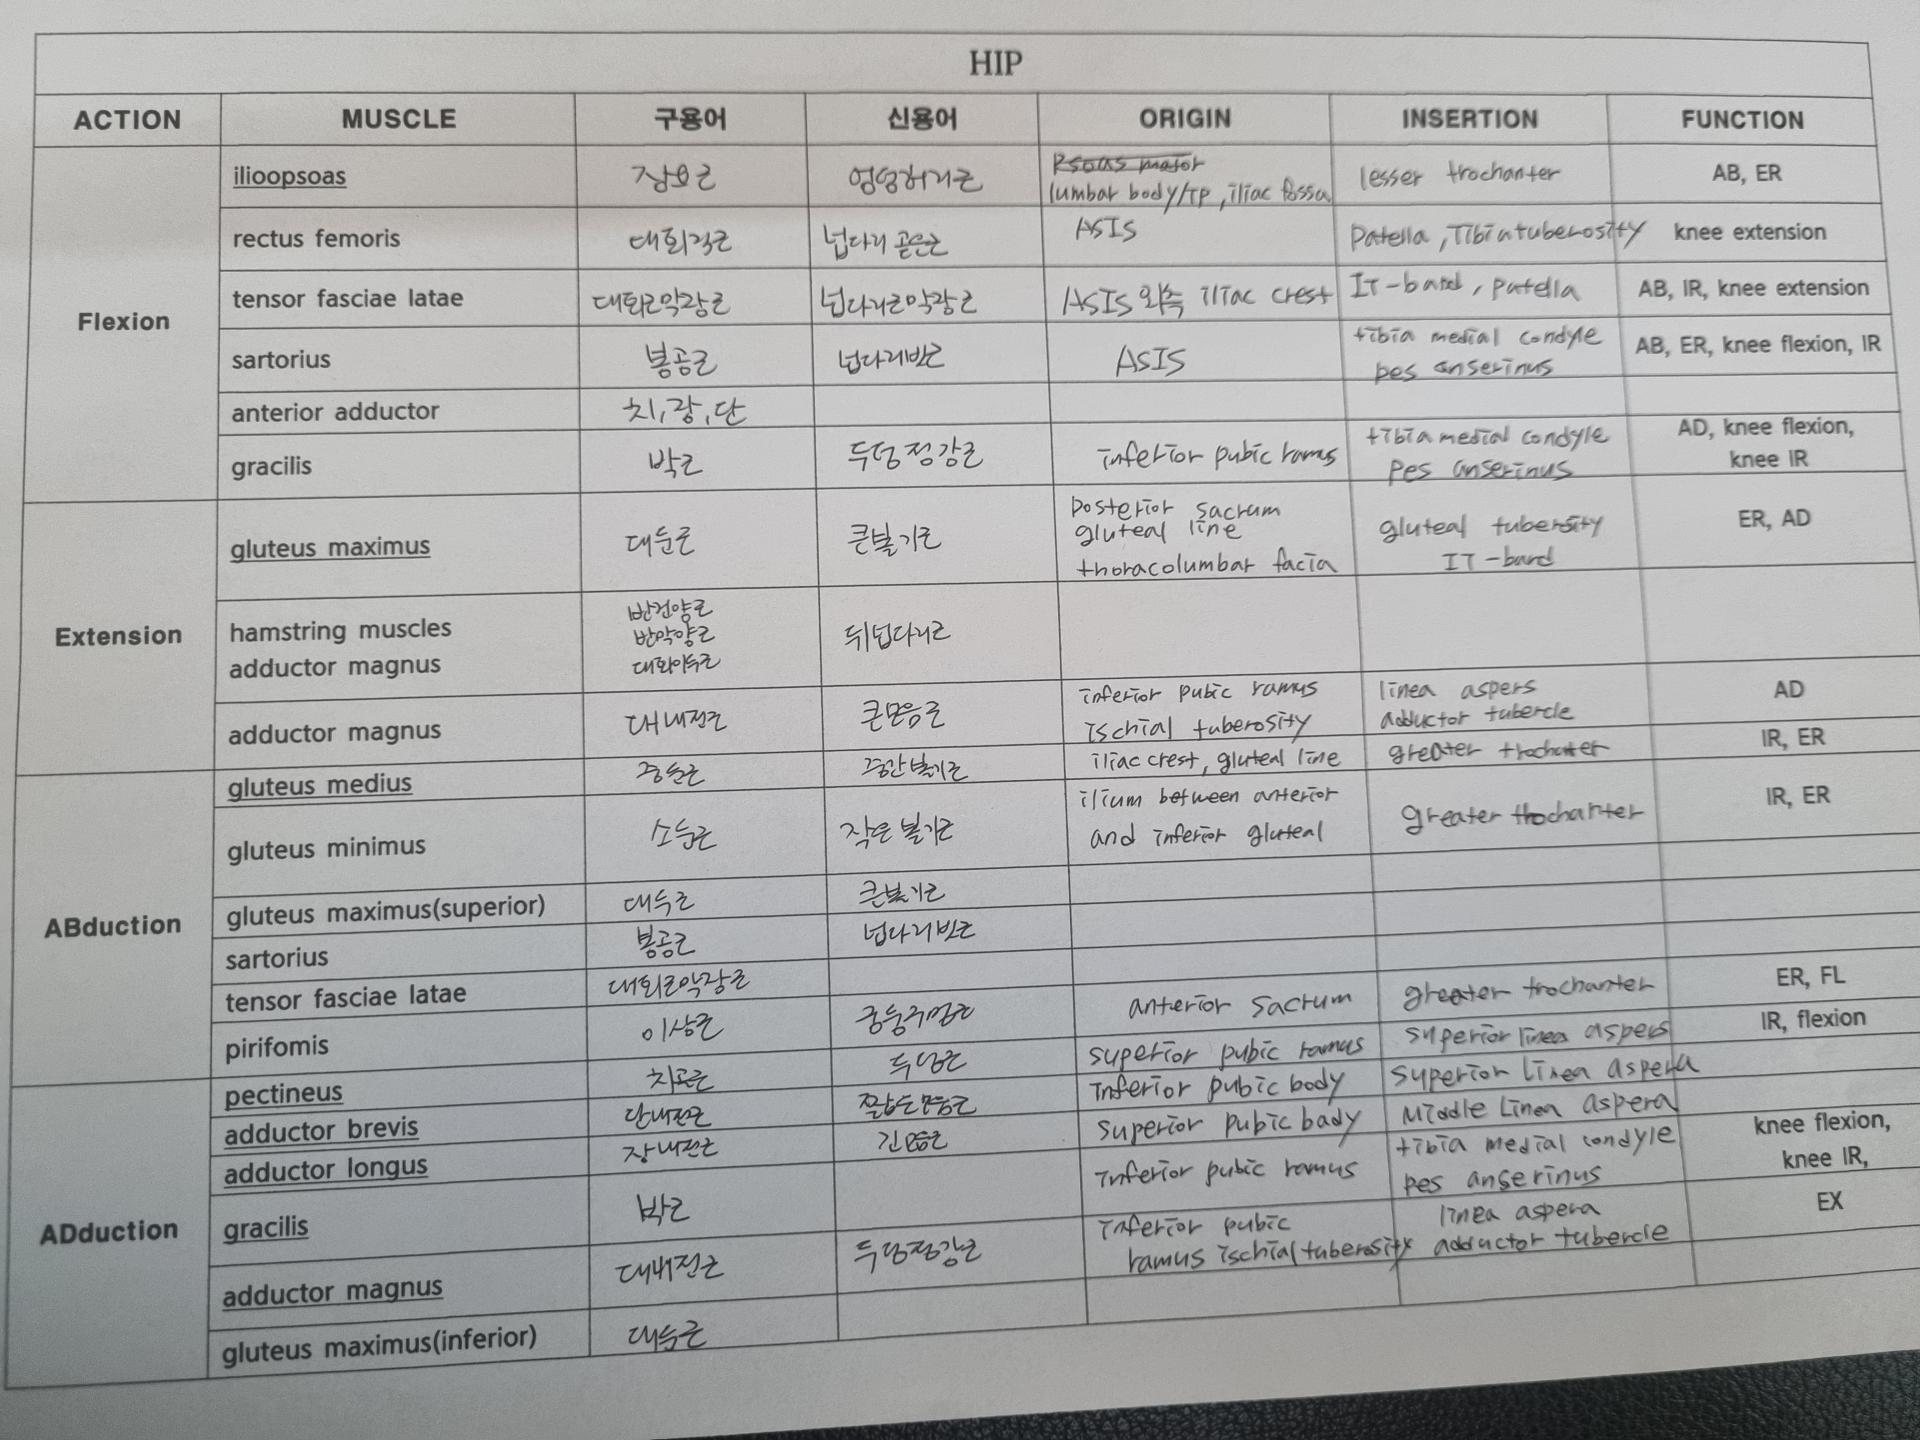 HIP
ACTION MUSCLE 구용어 신용어 ORIGIN INSERTION FUNCTION
Flexion
ilioopsoas 장요근 엉덩허리근 Psoas major lumbar body/TP, iliac fossa lesser trochanter AB, ER
rectus femoris 대퇴직근 넙다리 곧은근 ASIS Patella, Tibia tuberosity knee extension
tensor fasciae latae 대퇴근막장근 넙다리근막장근 ASIS 외측 iliac crest IT-band, patella AB, IR, knee extension
sartorius 봉공근 넙다리빗근 ASIS tibia medial condyle pes anserinus AB, ER, knee flexion, IR
anterior adductor 치, 장, 단
gracilis 박근 두덩정강근 inferior pubic ramus tibia medial condyle pes anserinus AD, knee flexion, knee IR
Extension
gluteus maximus 대둔근 큰볼기근 posterior sacrum gluteal line thoracolumbar facia gluteal tuberosity IT-band ER, AD
hamstring muscles adductor magnus 반건양근 반막양근 대퇴이두근 뒤넙다리근
adductor magnus 대내전근 큰모음근 inferior pubic ramus ischial tuberosity linea aspers adductor tubercle AD
ABduction
gluteus medius 중둔근 중간볼기근 iliac crest, gluteal line greater trochater IR, ER
gluteus minimus 소둔근 작은볼기근 ilium between anterior and inferior gluteal greater trochanter IR, ER
gluteus maximus(superior) 대둔근 큰볼기근
sartorius 봉공근 넙다리빗근
tensor fasciae latae 대퇴근막장근
pirifomis 이상근 궁둥구멍근 anterior sacrum greater trochanter ER, FL
ADduction
pectineus 치골근 두덩근 superior pubic ramus superior linea aspers IR, flexion
adductor brevis 단내전근 짧은모음근 Inferior pubic body superior linea aspera
adductor longus 장내전근 긴모음근 superior pubic bady Middle linea aspera
gracilis 박근 inferior pubic ramus tibia medial condyle pes anserinus knee flexion, knee IR,
adductor magnus 대내전근 두덩정강근 inferior pubic ramus ischial tuberosity linea aspera adductor tubercle EX
gluteus maximus(inferior) 대둔근